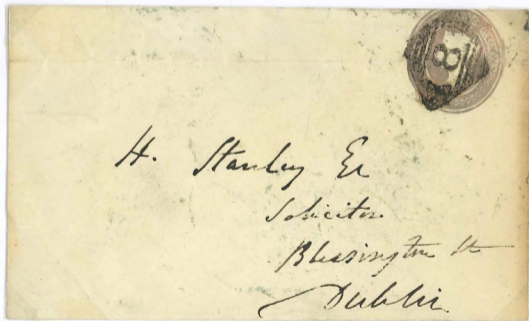 8
H. Stanley Er
Solicitor
Blessington St
Dublin